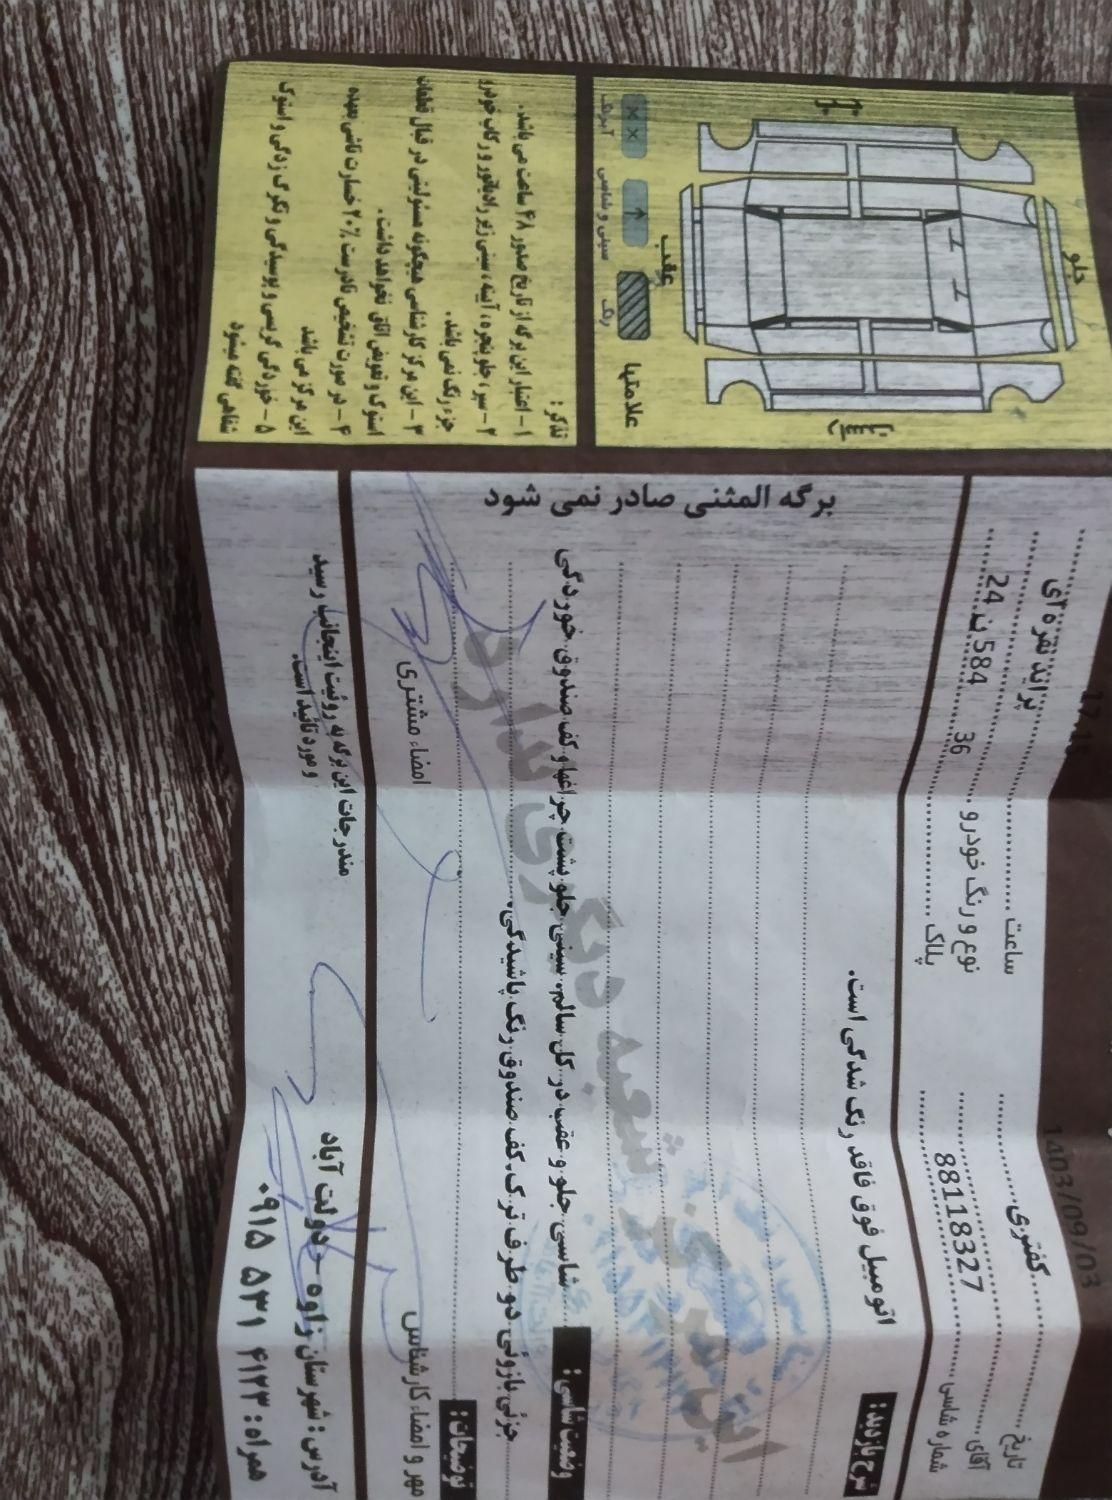 تاریخ 1403/09/03 ساعت 17:15
آقای کفتری نوع و رنگ خودرو پراید نقره ای
شماره شاسی 88118327 پلاک 36 584 ند 24
شرح بازدید:
اتومبیل فوق فاقد رنگ شدگی است.
این مرکز شعبه دیگری ندارد
وضعیت شاسی: شاسی جلو و عقب در کل سالم. سینی جلو پشت چراغها و کف صندوق خوردگی
جزئی بازوئی دو طرف ترک. کف صندوق رنگ پاشیدگی.
توضیحات:
مهر و امضاء کارشناس
امضاء مشتری
آدرس: شهرستان زاوه - دولت آباد
همراه: ۰۹۱۵ ۵۳۱ ۴۱۲۳
مندرجات این برگه به روئیت اینجانب رسید
و مورد تائید است.
برگه المثنی صادر نمی شود
جلو
عقب
علامتها
رنگ
سینی و شاسی
آبرنگ
تذکر:
۱- اعتبار این برگه از تاریخ صدور ۴۸ ساعت می باشد.
۲- سپر، جلو پنجره، آینه، سینی زیر رادیاتور و رکاب خودرو
جزء رنگ نمی باشد.
۳- این مرکز کارشناسی هیچگونه مسئولیتی در قبال قطعات
استوک و تعویض اتاق نخواهد داشت.
۴- در صورت تشخیص نادرست ۲۰٪ خسارت ناشی بعهده
این مرکز می باشد
۵- خوردگی گریسی و پوسیدگی و تگرگ زدگی و استوک
شفاهی گفته میشود